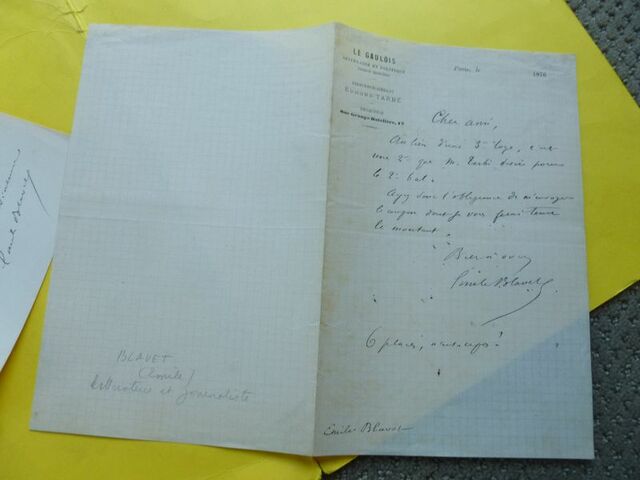 LE GAULOIS
LITTÉRAIRE ET POLITIQUE
EDMOND TARBÉ
Rue Grange-Batelière, 12
Paris, le 1876
Cher ami,
Au lieu d'une 3e loge, c'est
une 2e que M. Tarbé désire pour
le 2e bal.
Ayez donc l'obligeance de m'envoyer
le coupon dont je vous ferai tenir
le montant.
Bien à vous
Emile Blavet
6 places, n'est-ce pas ?
Emile Blavet
BLAVET
(Emile)
littérateur et journaliste
Emile Blavet